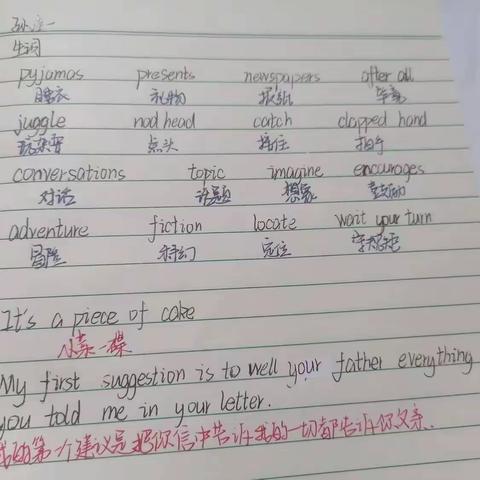 生词
pyjamas presents newspapers after all
睡衣 礼物 报纸 毕竟
juggle nod head catch clapped hand
玩杂耍 点头 接住 拍手
conversations topic imagine encourages
对话 话题 想象 鼓励
adventure fiction locate wait your turn
冒险 科幻 定位
It's a piece of cake
小菜一碟
My first suggestion is to well your father everything
you told me in your letter.
我的第一个建议是把你信中告诉我的一切都告诉你父亲.